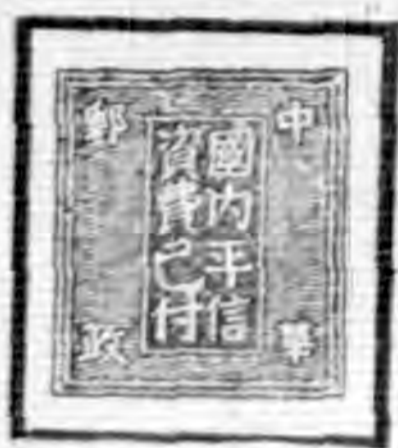 中華
郵政
國內平信
資費已付